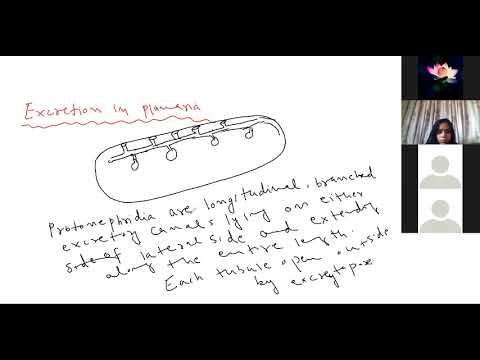 Excretion in planaria
Protonephridia are longitudinal, branched
excretory canals lying on either
side of lateral side and extending
along the entire length.
Each tubule open outside
by excretopore